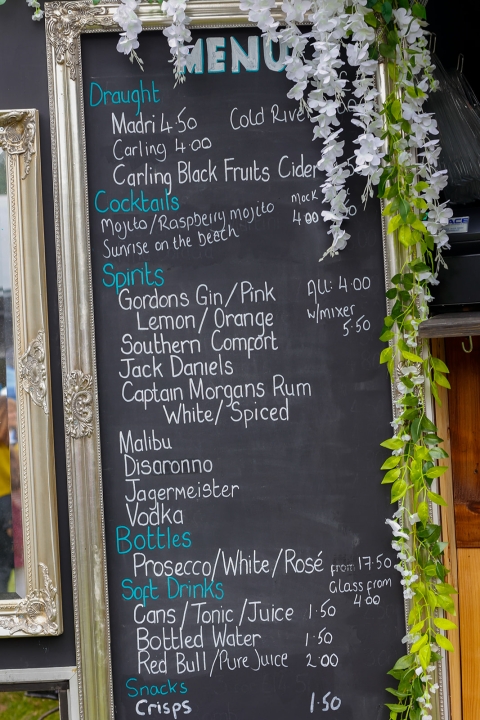 MENU
Draught
Madri 4.50 Cold Rive
Carling 4.00
Carling Black Fruits Cider
Cocktails
Mojito/Raspberry mojito Mock 4.00
Sunrise on the beech
Spirits
Gordons Gin/Pink ALL: 4.00
Lemon/Orange w/mixer
Southern Comfort 5.50
Jack Daniels
Captain Morgans Rum
White/Spiced
Malibu
Disaronno
Jagermeister
Vodka
Bottles
Prosecco/White/Rosé from 17.50
Soft Drinks Glass from
4.00
Cans/Tonic/Juice 1.50
Bottled Water 1.50
Red Bull/Pure Juice 2.00
Snacks
Crisps 1.50